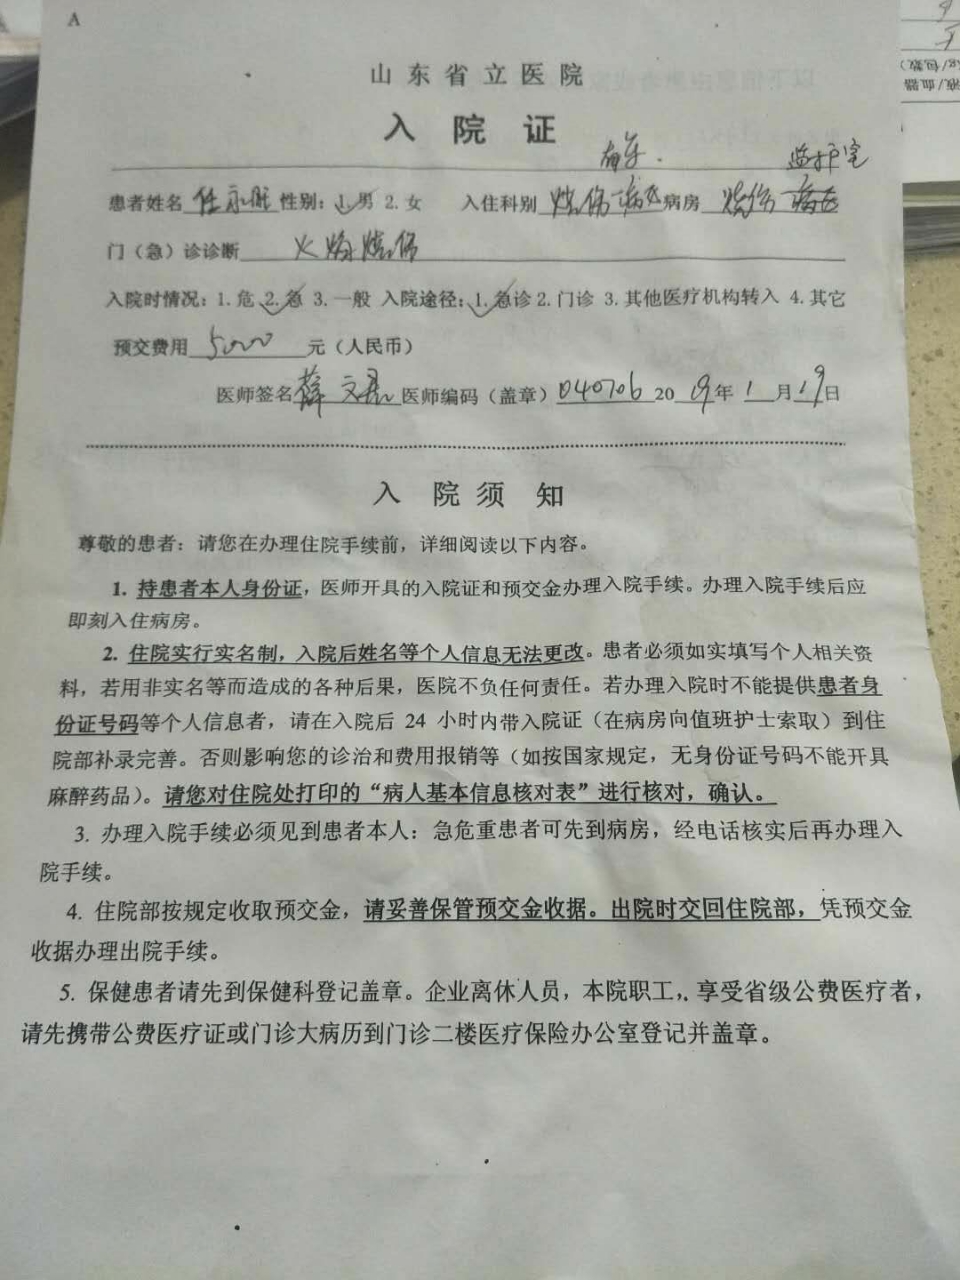 A
山东省立医院
入院证
监护室
患者姓名 任永 性别：1.男 2.女 入住科别 烧伤 病区 病房 烧伤 病区
门（急）诊诊断 火焰烧伤
入院时情况：1.危 2.急 3.一般 入院途径：1.急诊 2.门诊 3.其他医疗机构转入 4.其它
预交费用 5000 元（人民币）
医师签名 薛文君 医师编码（盖章）040706 2019年1月19日
入院须知
尊敬的患者：请您在办理住院手续前，详细阅读以下内容。
1. 持患者本人身份证，医师开具的入院证和预交金办理入院手续。办理入院手续后应
即刻入住病房。
2. 住院实行实名制，入院后姓名等个人信息无法更改。患者必须如实填写个人相关资
料，若用非实名等而造成的各种后果，医院不负任何责任。若办理入院时不能提供患者身
份证号码等个人信息者，请在入院后 24 小时内带入院证（在病房向值班护士索取）到住
院部补录完善。否则影响您的诊治和费用报销等（如按国家规定，无身份证号码不能开具
麻醉药品）。请您对住院处打印的“病人基本信息核对表”进行核对，确认。
3. 办理入院手续必须见到患者本人：急危重患者可先到病房，经电话核实后再办理入
院手续。
4. 住院部按规定收取预交金，请妥善保管预交金收据。出院时交回住院部，凭预交金
收据办理出院手续。
5. 保健患者请先到保健科登记盖章。企业离休人员，本院职工，. 享受省级公费医疗者，
请先携带公费医疗证或门诊大病历到门诊二楼医疗保险办公室登记并盖章。